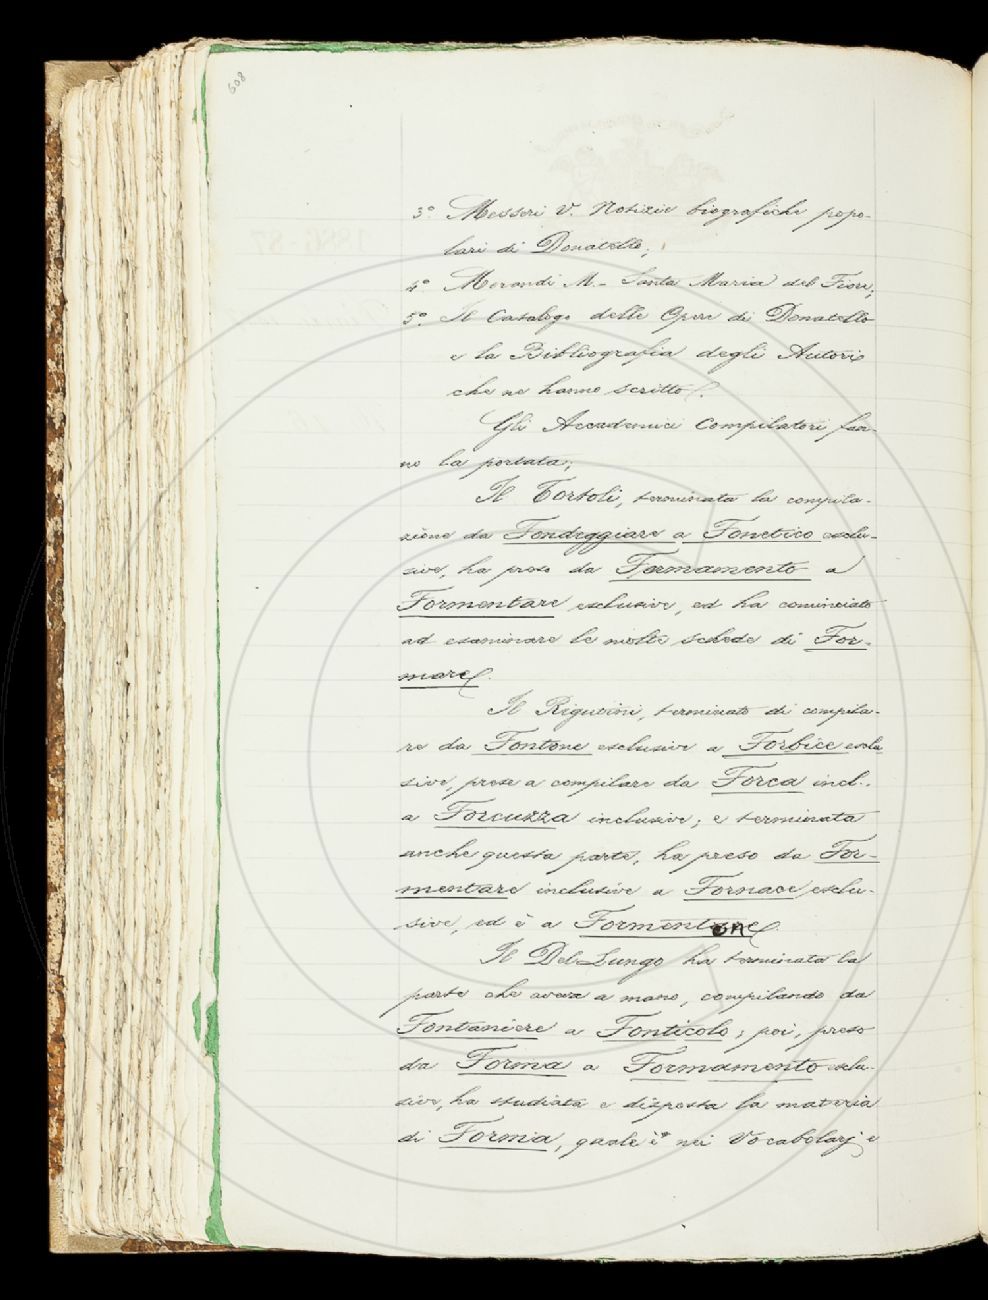 608
3° Messeri V. Notizie biografiche popo-
lari di Donatello;
4° Morandi M. - Santa Maria del Fiore;
5° Il Catalogo delle Opere di Donatello
e la Bibliografia degli Autori
che ne hanno scritto.
Gli Accademici Compilatori fan-
no la portata;
Il Tortoli, terminata la compila-
zione da Fondeggiare a Fonetico esclu-
sive, ha preso da Formamento a
Formentare esclusive, ed ha cominciato
ad esaminare le molte schede di For-
mare.
Il Rigutini, terminato di compila-
re da Fontone esclusive a Forbice esclu
sive, prese a compilare da Forca incl.
a Forcuzza inclusive; e terminata
anche questa parte, ha preso da For-
mentare inclusive a Fornace esclu-
sive, ed è a Formentone.
Il Del Lungo ha terminata la
parte che aveva a mano, compilando da
Fontaniere a Fonticolo; poi, preso
da Forma a Formamento esclu-
sive, ha studiata e disposta la materia
di Forma, quale è nei Vocabolarj e